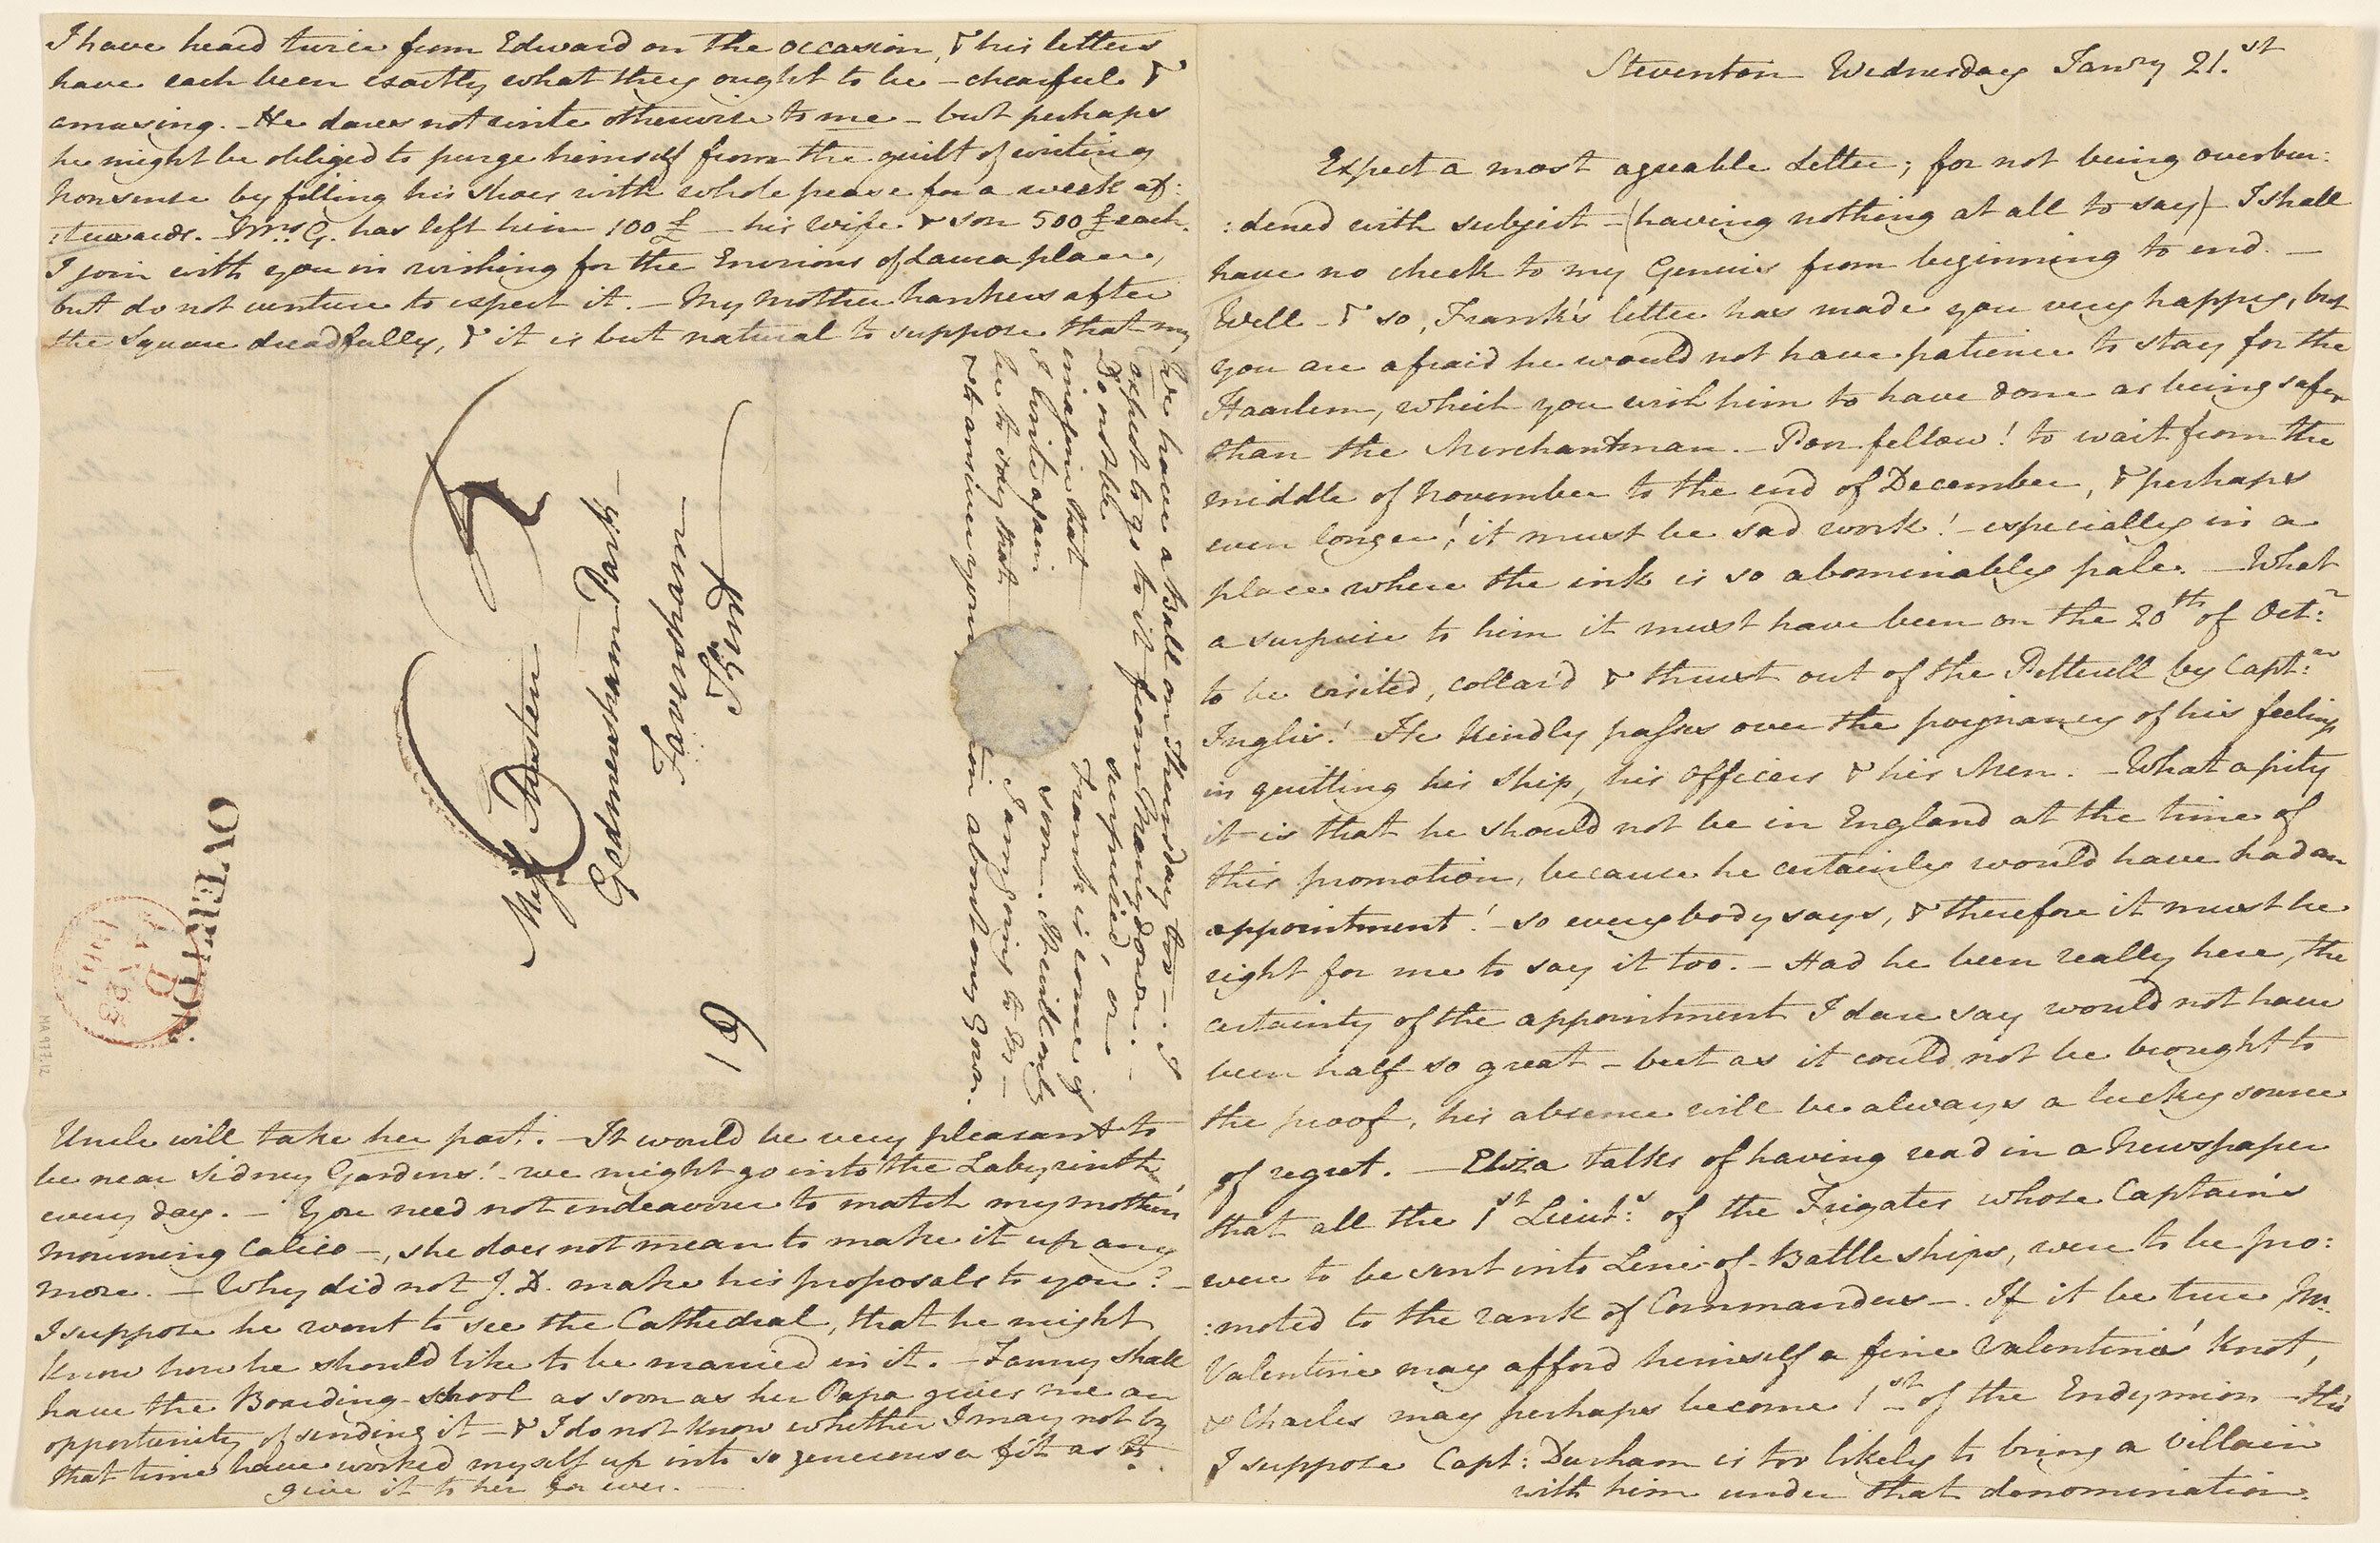 Steventon Wednesday Janry 21.st
Expect a most agreable Letter; for not being overbur:
:dened with subject - (having nothing at all to say) - I shall
have no check to my Genius from beginning to end. -
Well - & so, Frank's letter has made you very happy, but
you are afraid he would not have patience to stay for the
Haarlem, which you wish him to have done as being safer
than the Merchantman. - Poor fellow! to wait from the
middle of November to the end of December, & perhaps
even longer! it must be sad work! - especially in a
place where the ink is so abominably pale. - What
a surprise to him it must have been on the 20th of Octr:
to be visited, collar'd & thrust out of the Petterell by Captn:
Inglis! He kindly passes over the poignancy of his feelings
in quitting his Ship, his Officers & his Men. - What a pity
it is that he should not be in England at the time of
this promotion, because he certainly would have had an
appointment! - so everybody says, & therefore it must be
right for me to say it too. - Had he been really here, the
certainty of the appointment I dare say would not have
been half so great - but as it could not be brought to
the proof, his absence will be always a lucky source
of regret. - Eliza talks of having read in a Newspaper
that all the 1st Lieuts: of the Frigates whose Captains
were to be sent into Line-of-Battle ships, were to be pro:
:moted to the rank of Commanders -. If it be true, Mr.
Valentine may afford himself a fine Valentine's knot,
& Charles may perhaps become 1st of the Endymion - tho'
I suppose Capt: Durham is too likely to bring a villain
with him under that denomination.
I have heard twice from Edward on the occasion, & his letters
have each been exactly what they ought to be - chearful &
amusing. - He dares not write otherwise to me - but perhaps
he might be obliged to purge himself from the guilt of writing
Nonsense by filling his shoes with whole pease for a week af:
:terwards. - Mrs. G. has left him 100£ - his wife & son 500£ each.
I join with you in wishing for the Environs of Laura place,
but do not venture to expect it. - My Mother hankers after
the Square dreadfully, & it is but natural to suppose that my
Uncle will take her part. - It would be very pleasant to
be near Sidney Gardens! - we might go into the Labyrinth
every day. - You need not endeavour to match my mother's
mourning Calico -, she does not mean to make it up any
more. - Why did not J. D. make his proposals to you? -
I suppose he went to see the Cathedral, that he might
know how he should like to be married in it. - Fanny shall
have the Boarding-school as soon as her Papa gives me an
opportunity of sending it - & I do not know whether I may not by
that time have worked myself up into so generous a fit as to
give it to her for ever. -
We have a Ball on Thursday too -. I
expect to go to it from Manydown. -
Do not be surprised, or
imagine that Frank is come if
I write again soon. It will only
be to say that I am going to M -
& to answer your tion about my Gown.
Miss Austen
Godmersham Park
Faversham
Kent
19
OVERTON
D
JA 23
1801
MA 977.12